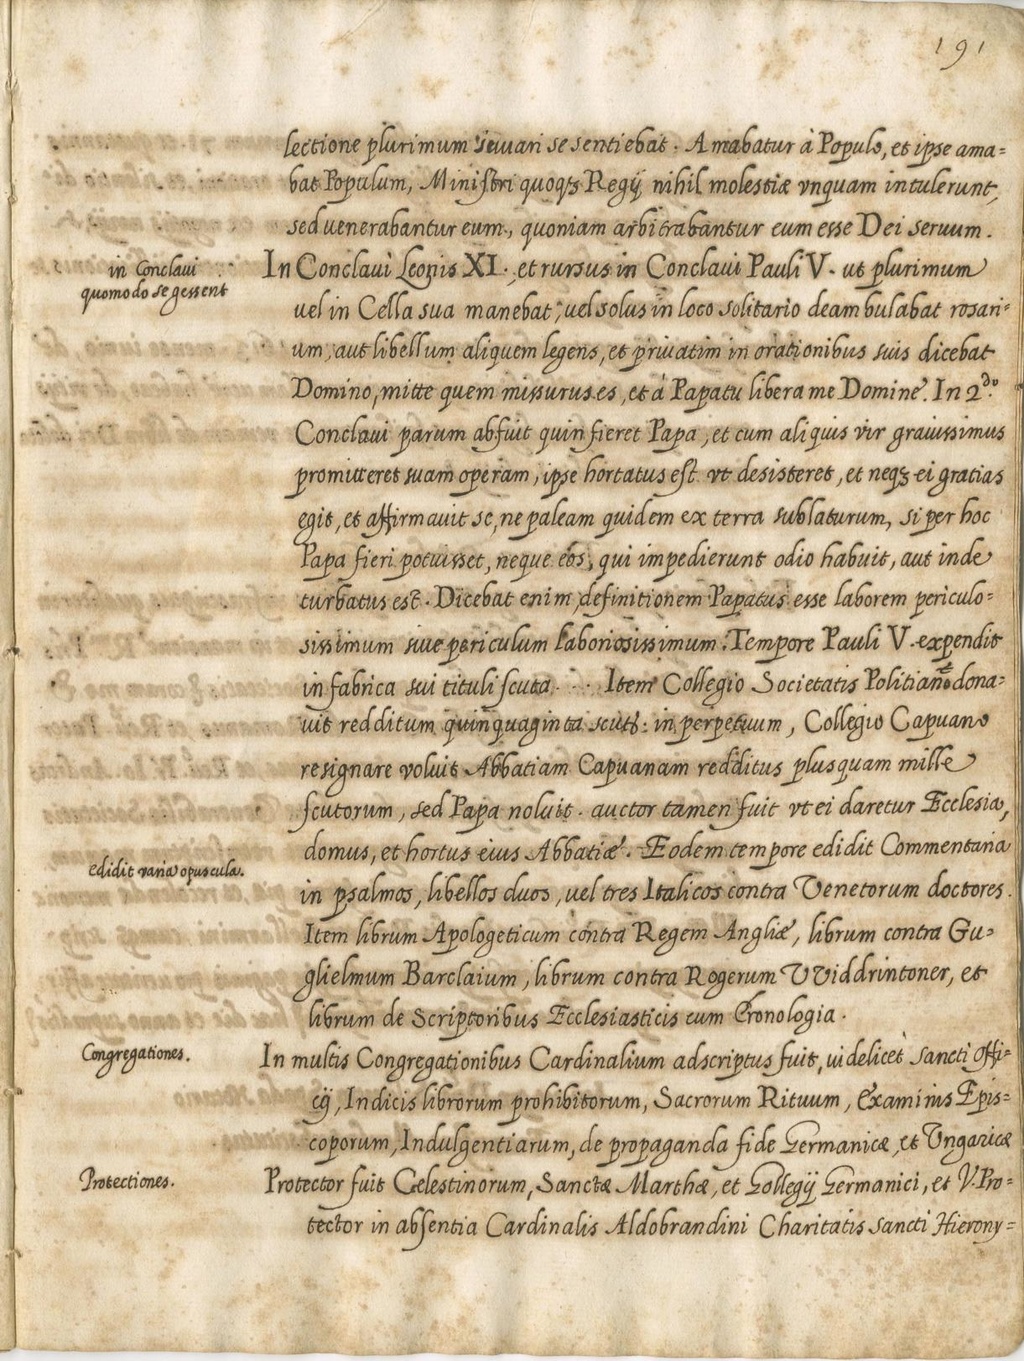 191
lectione plurimum iuuari se sentiebat. Amabatur à Populo, et ipse ama=
bat Populum, Ministri quoqz Regij nihil molestiæ vnquam intulerunt,
sed venerabantur eum, quoniam arbitrabantur eum esse Dei seruum.
in Conclaui
quomodo se gesserit
In Conclaui Leonis XI. et rursus in Conclaui Pauli V. ut plurimum
uel in Cella sua manebat, uel solus in loco solitario deambulabat rosari=
um, aut libellum aliquem legens, et priuatim in orationibus suis dicebat
Domino, mitte quem missurus es, et à Papatu libera me Domine. In 2.do
Conclaui parum abfuit quin fieret Papa, et cum aliquis vir grauissimus
promitteret suam operam, ipse hortatus est vt desisteret, et neqz ei gratias
egit, et affirmauit se, ne paleam quidem ex terra sublaturum, si per hoc
Papa fieri potuisset, neque eos, qui impedierunt odio habuit, aut inde
turbatus est. Dicebat enim, definitionem Papatus esse laborem periculo=
sissimum siue periculum laboriosissimum. Tempore Pauli V. expendit
in fabrica sui tituli scuta . . . Item Collegio Societatis Politiano dona=
uit redditum quinquaginta scut: in perpetuum, Collegio Capuano
resignare voluit Abbatiam Capuanam redditus plusquam mille
scutorum, sed Papa noluit. auctor tamen fuit vt ei daretur Ecclesia,
domus, et hortus eius Abbatiæ. Eodem tempore edidit Commentaria
edidit varia opuscula.
in psalmos, libellos duos, uel tres Italicos contra Venetorum doctores.
Item librum Apologeticum contra Regem Angliæ, librum contra Gu=
glielmum Barclaium, librum contra Rogerum VViddrintoner, et
librum de Scriptoribus Ecclesiasticis cum Cronologia.
Congregationes.
In multis Congregationibus Cardinalium adscriptus fuit, uidelicet sancti offi=
cij, Indicis librorum prohibitorum, Sacrorum Rituum, Examinis Epis=
coporum, Indulgentiarum, de propaganda fide Germanicæ, et Vngaricæ
Protectiones.
Protector fuit Celestinorum, Sanctæ Marthæ, et Collegij Germanici, et V. Pro=
tector in absentia Cardinalis Aldobrandini Charitatis sancti Hierony=